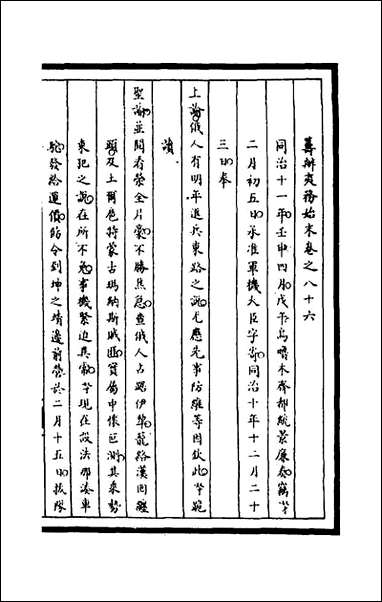 籌辦夷務始末卷之八十六
同治十一年壬申四月戊午烏嚕木齊都統景廉奏竊才
二月初五日承准軍機大臣字寄同治十年十二月二十
三日奉
上諭俄人有明年進兵東路之說尤應先事防維等因欽此才跪
讀
聖諭並閱看榮全片奏不勝焦急查俄人占踞伊犂籠絡漢回纏
頭及土爾扈特蒙古瑪納斯賊匪實屬中懷叵測其乘勢
東犯之說在所不免事機緊迫異常才現在設法那湊車
駝發給運價飭令到坤之靖邊前營於二月十五日拔隊